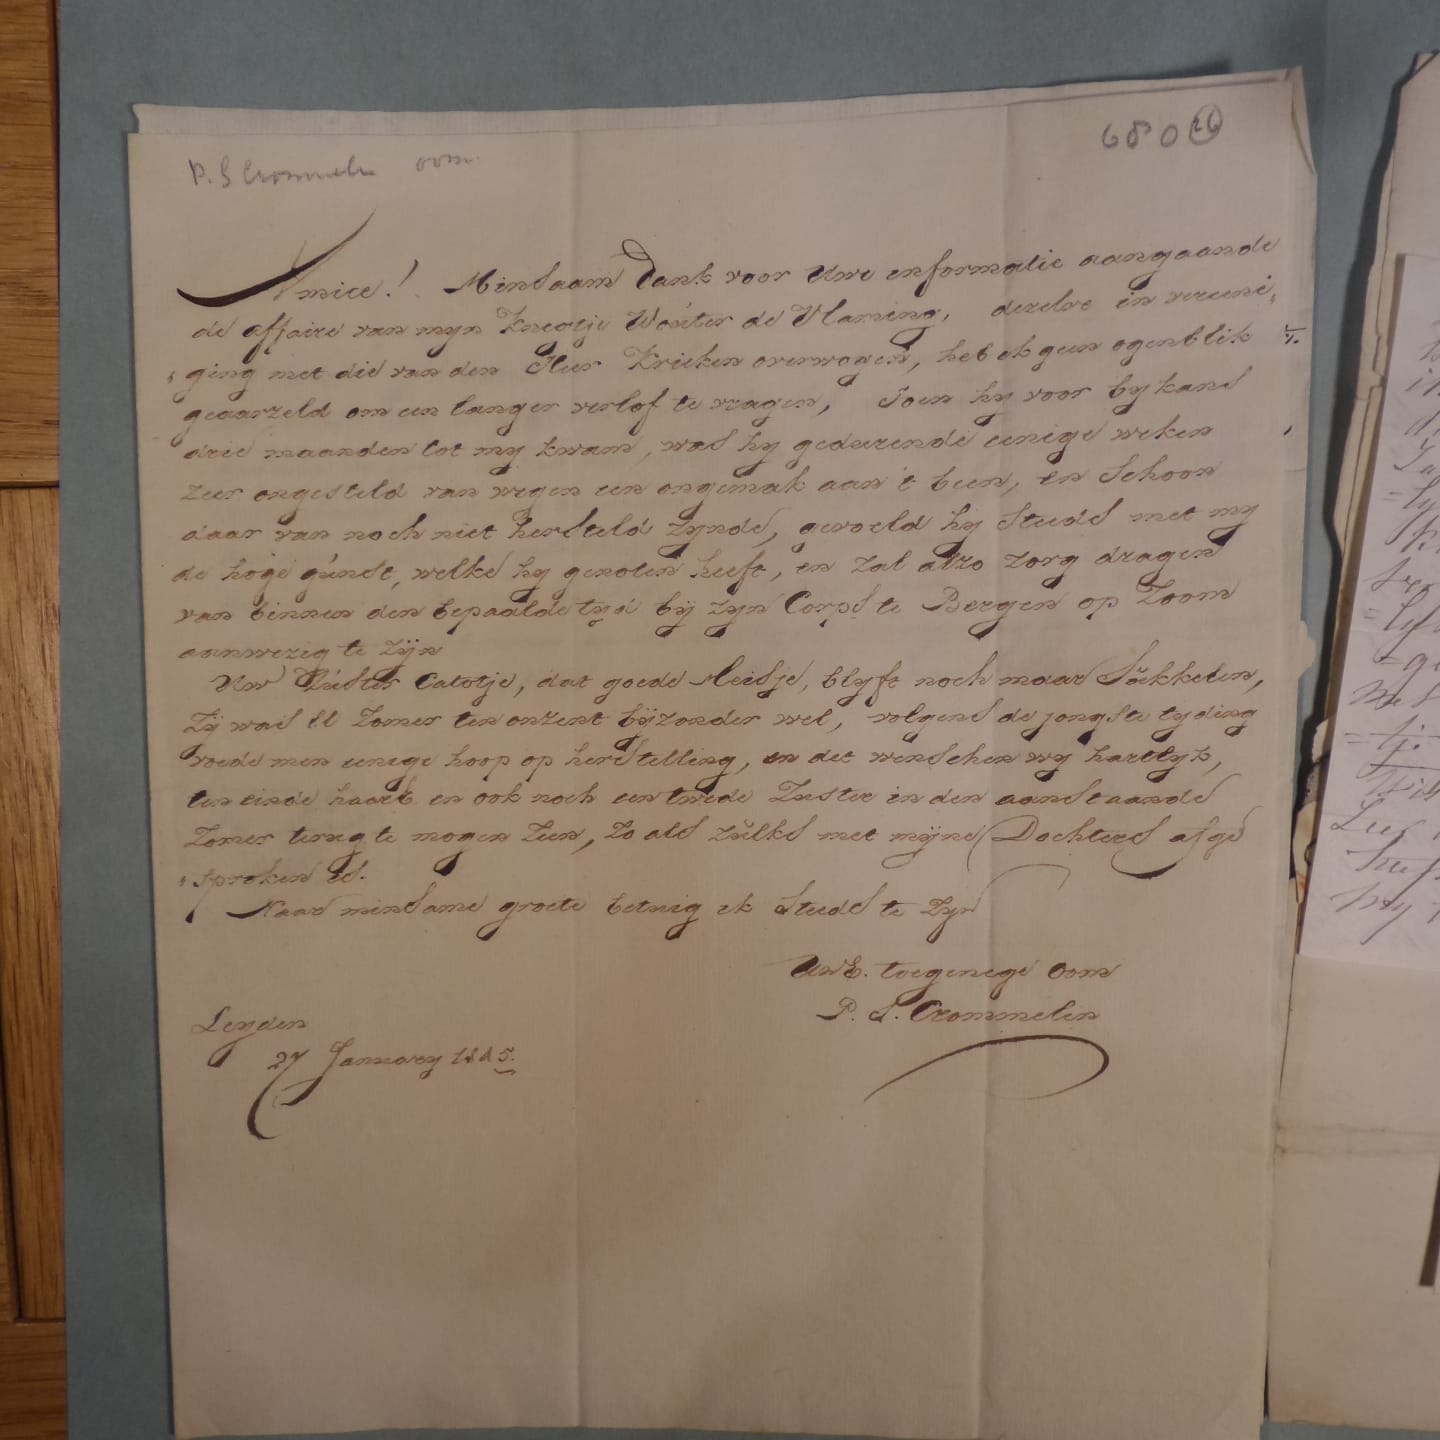 P. S Crommelin oom
680 26
Amice! Minsaam Dank voor Uwe informatie aangaande
de affaire van mijn Knegtje Wouter de Vlaming, dezelve in vereeni,
„ging met die van den Heer Krieken overwogen, heb ik geen ogenblik
geaarzeld om een langer verlof te vragen, Toen hy voor bykans
drie maanden tot my kwam, was hy gedurende eenige weken
zeer ongesteld van wegen een ongemak aan 't been, en Schoon
daar van noch niet hersteld zynde, gevoeld hy Steeds met my
de hoge gunst, welke hy genoten heeft, en zal alzo zorg dragen
van binnen den bepaalde tyd bij zyn Corps te Bergen op Zoom
aanwezig te zijn
Uw Zuster Catotje, dat goede Meisje, blyft noch maar Sukkelen,
Zij was ll Zomer ten onzent bijzonder wel, volgens de jongste tyding
voede men eenige hoop op herstelling, en det wenschen wy hartlyk,
ten einde haar en ook noch een twede Zuster in den aanstaande
Zomer terug te mogen Zien, Zo als zulks met mijne Dochters afge
„sproken is.
Naar minsame groete betuig ik Steeds te Zyn
UwE. toegenege Oom
P. S. Crommelin
Leyden
27 January